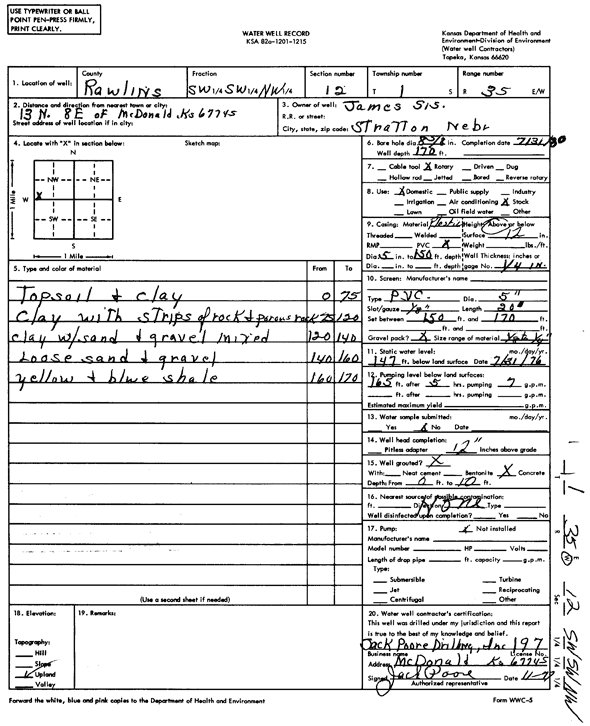 USE TYPEWRITER OR BALL
POINT PEN-PRESS FIRMLY,
PRINT CLEARLY.
WATER WELL RECORD
KSA 82a-1201-1215
Kansas Department of Health and
Environment-Division of Environment
(Water well Contractors)
Topeka, Kansas 66620
1. Location of well: County Rawlins Fraction SW 1/4 SW 1/4 NW 1/4 Section number 12 Township number T 1 S Range number R 35 E/W
2. Distance and direction from nearest town or city: 13 N. 8E of McDonald, Ks 67745
Street address of well location if in city:
3. Owner of well: James Sis.
R.R. or street:
City, state, zip code: Stratton Nebr
4. Locate with "X" in section below: Sketch map:
N
NW NE
W X E
SW SE
S
1 Mile
1 Mile
5. Type and color of material From To
Topsoil & clay 0 75
Clay with strips of rock & porous rock 75 120
clay w/sand & gravel mixed 120 140
Loose sand & gravel 140 160
yellow & blue shale 160 170
(Use a second sheet if needed)
6. Bore hole dia. in. Completion date
Well depth 170 ft.
7. Cable tool X Rotary Driven Dug
Hollow rod Jetted Bored Reverse rotary
8. Use: X Domestic Public supply Industry
Irrigation Air conditioning X Stock
Lawn Oil field water Other
9. Casing: Material Plastic Height: Above or below
Threaded Welded Surface 12 in.
RMP PVC X Weight lbs./ft.
Dia. 5 in. to 150 ft. depth Wall Thickness: inches or
Dia. in. to ft. depth gage No. 1/4 in.
10. Screen: Manufacturer's name
Type PVC Dia. 5"
Slot/gauze 1/8" Length 20"
Set between 150 ft. and 170 ft.
ft. and ft.
Gravel pack? X Size range of material
11. Static water level: mo./day/yr.
147 ft. below land surface Date 7/31/76
12. Pumping level below land surfaces:
165 ft. after 5 hrs. pumping 7 g.p.m.
ft. after hrs. pumping g.p.m.
Estimated maximum yield g.p.m.
13. Water sample submitted: mo./day/yr.
Yes X No Date
14. Well head completion:
Pitless adapter 12" Inches above grade
15. Well grouted? X
With: Neat cement Bentonite X Concrete
Depth: From 0 ft. to 10 ft.
16. Nearest source of possible contamination:
ft. Direction None Type
Well disinfected upon completion? Yes No
17. Pump: X Not installed
Manufacturer's name
Model number HP Volts
Length of drop pipe ft. capacity g.p.m.
Type:
Submersible Turbine
Jet Reciprocating
Centrifugal Other
18. Elevation: 19. Remarks:
Topography:
Hill
Slope
Upland
Valley
20. Water well contractor's certification:
This well was drilled under my jurisdiction and this report
is true to the best of my knowledge and belief.
Jack Poore Drilling, Inc 197
Business name License No.
Address McDonald Ks 67745
Signed Jack Poore Date
Authorized representative
T 1 R 35 E W Sec 12 SW SW NW 1/4 1/4 1/4
Forward the white, blue and pink copies to the Department of Health and Environment Form WWC-5